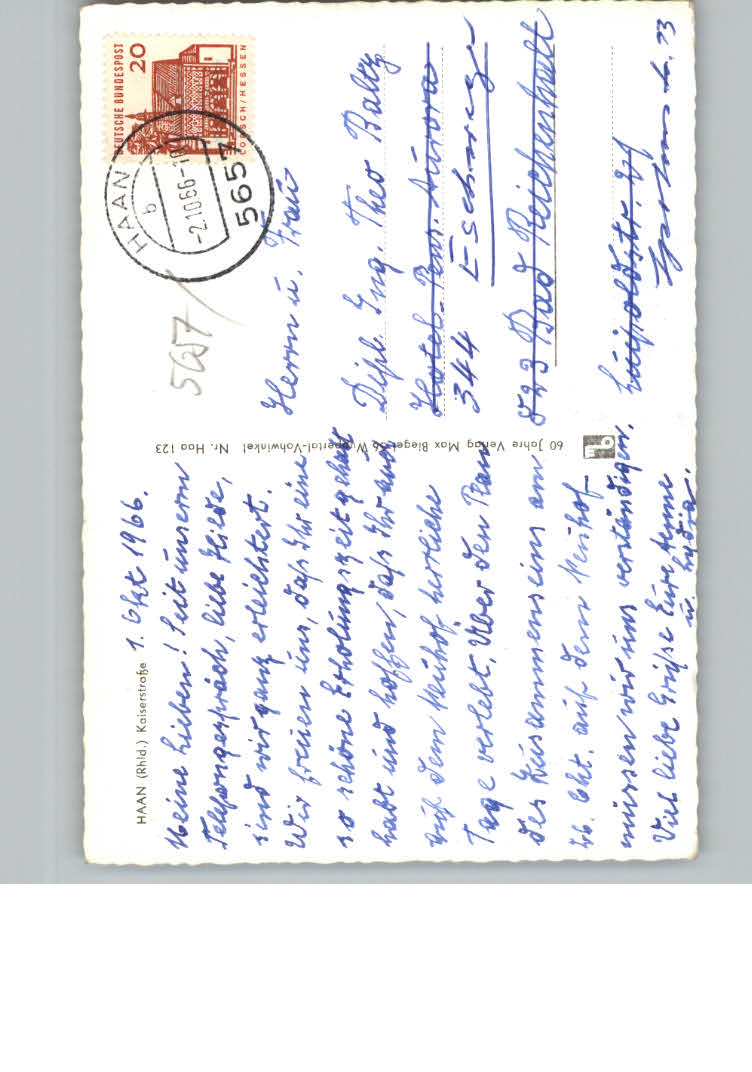 HAAN (Rhld.) Kaiserstraße
1. Okt 1966.
Meine Lieben! Seit unserm
Telefongespräch, liebe Hilde,
sind wir ganz erleichtert.
Wir freuen uns, daß Ihr eine
so schöne Erholungszeit gehabt
habt und hoffen, daß Ihr auch
auf dem Neuhof herrliche
Tage verlebt. Über den Plan
des Zusammenseins am
16. Okt. auf dem Neuhof
müssen wir uns verständigen.
Viele liebe Grüße Eure Änne
u.
60 Jahre Verlag Max Biegel 56 Wuppertal-Vohwinkel Nr. Haa 123
DEUTSCHE BUNDESPOST
20
LORSCH/HESSEN
HAAN
b
-2.10.66-
5657
5657
Herrn u. Frau
Dipl. Ing. Theo Baltz
Hotel-Pens. Aurora
344 Eschwege
823 Bad Reichenhall
Luitpoldstr.